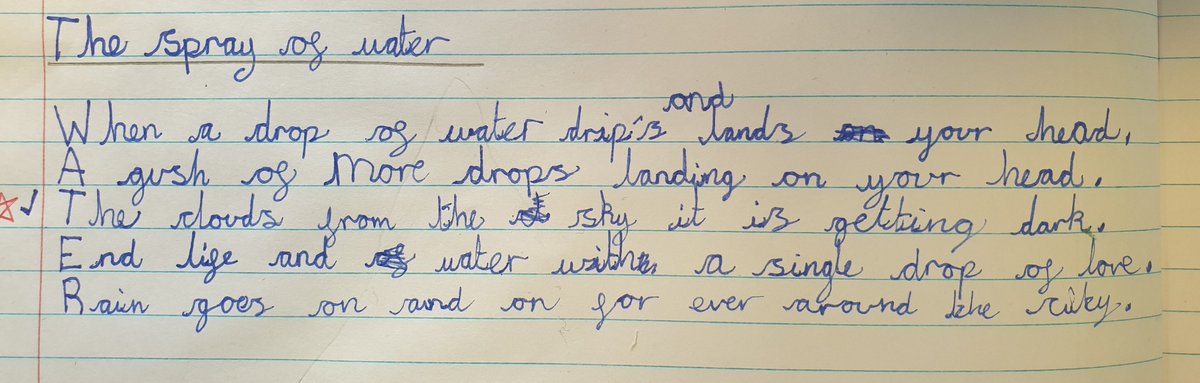 The spray of water
When a drop of water drip's and lands your head,
A gush of More drops landing on your head.
The clouds from the sky it is getting dark.
End life and water with a single drop of love.
Rain goes on and on for ever around the city.